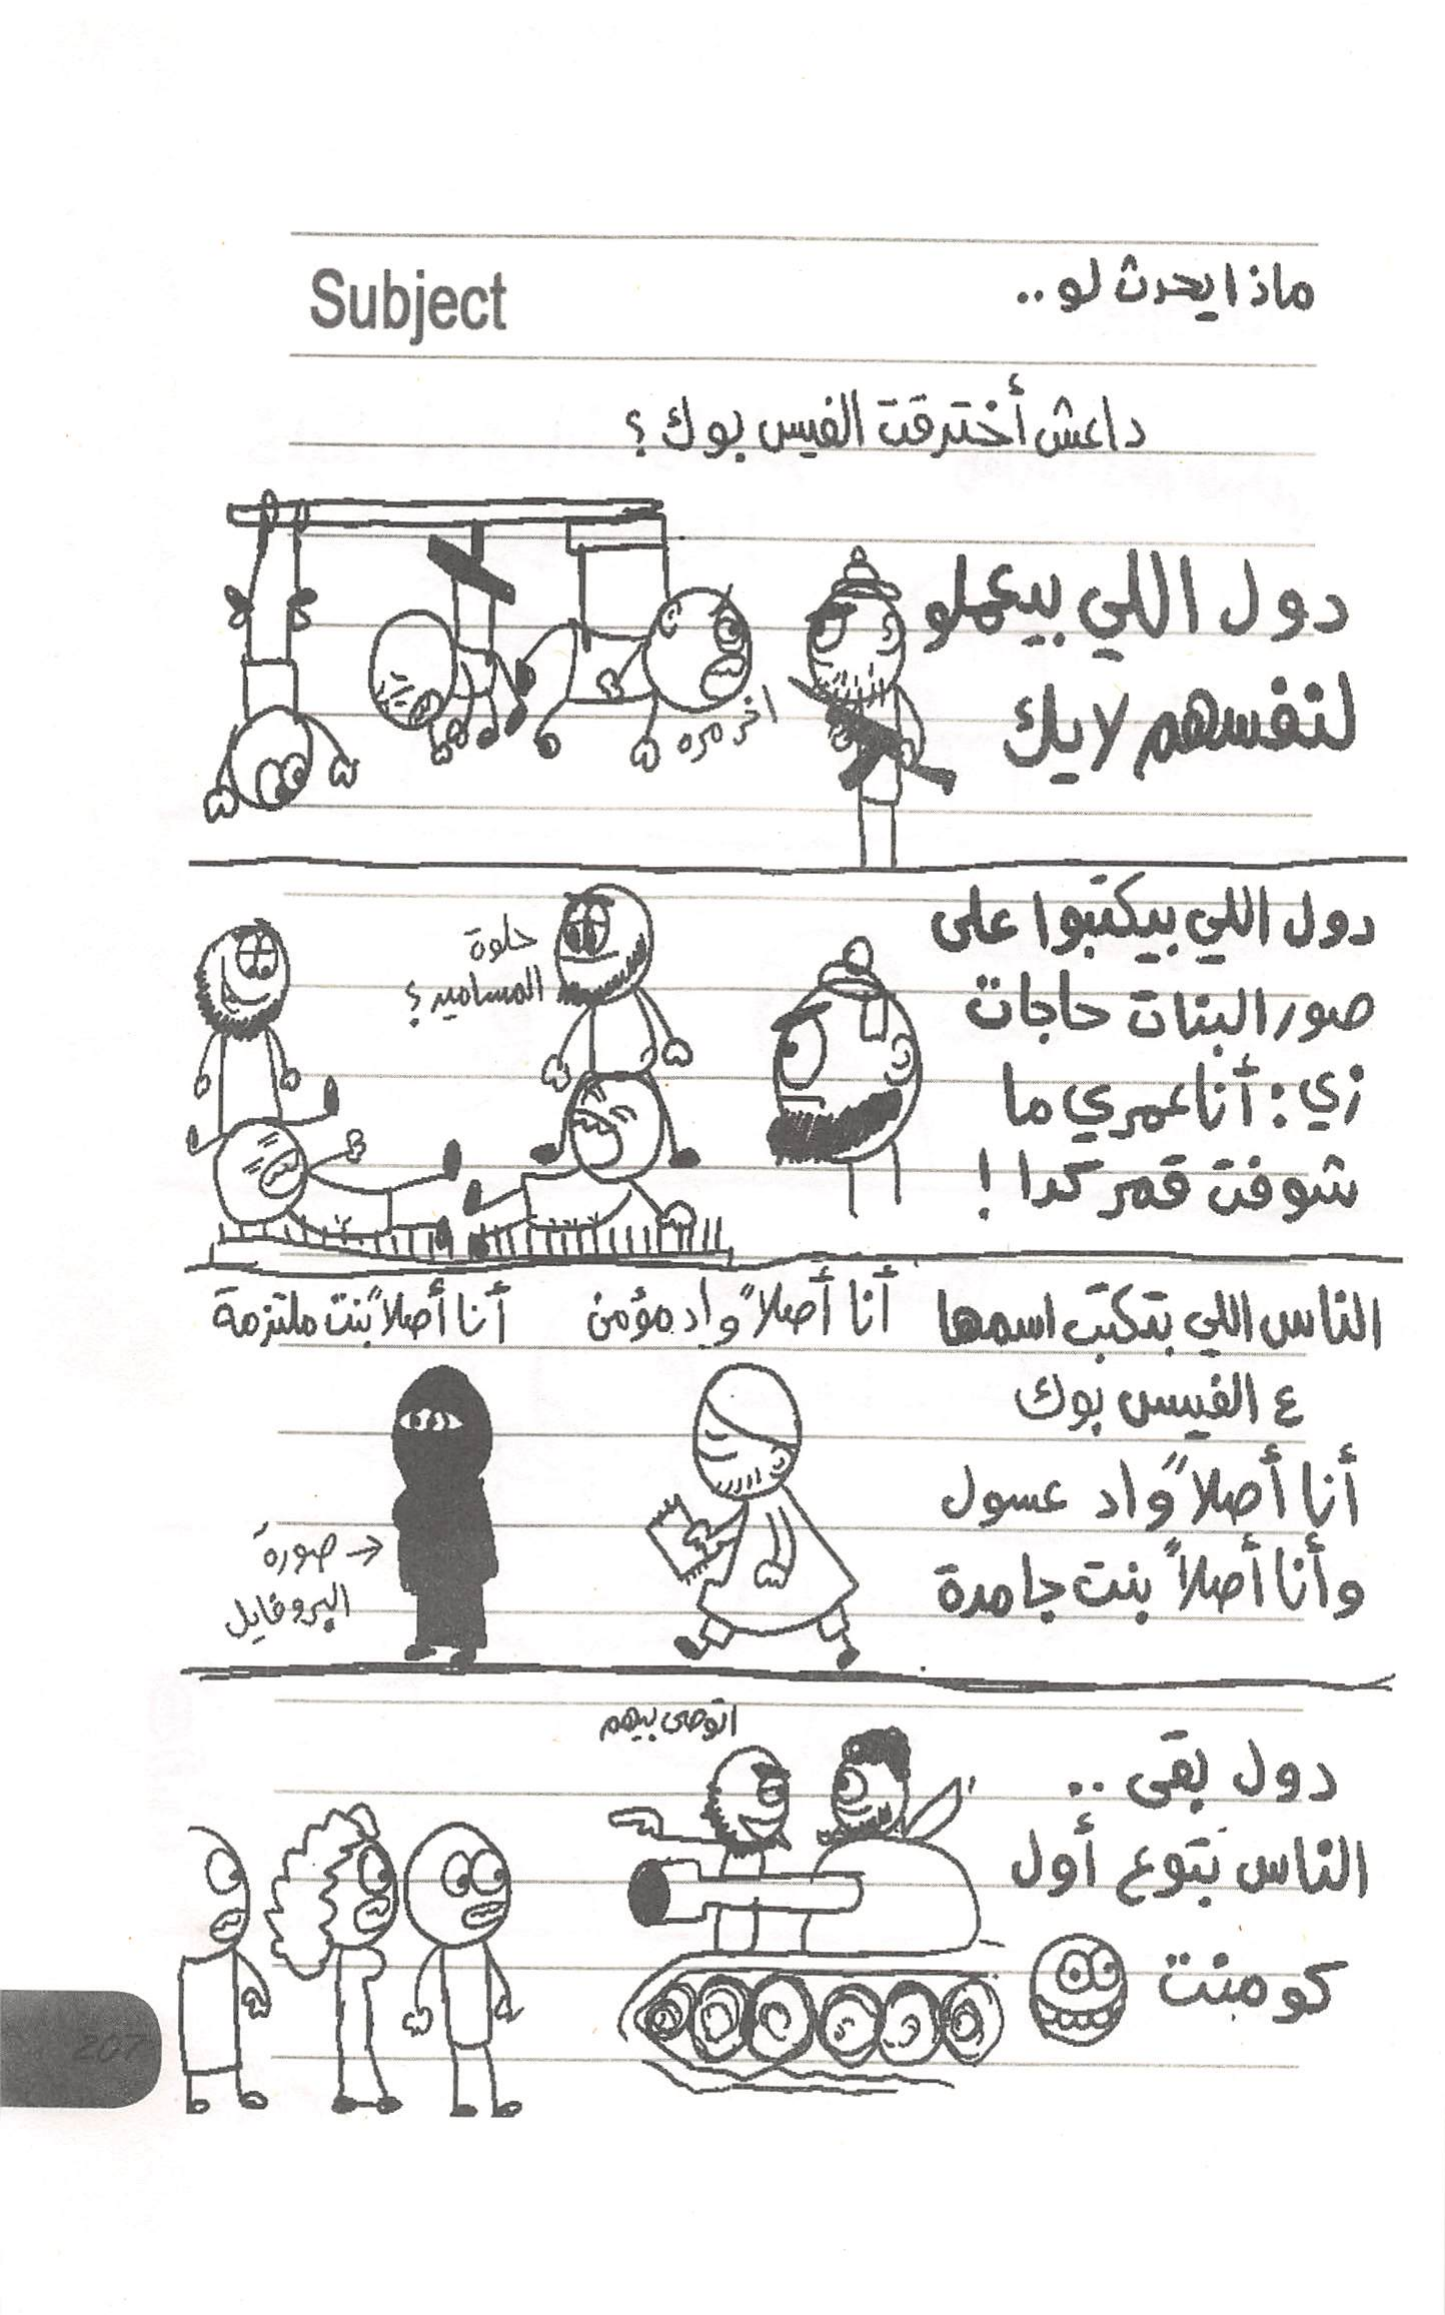 Subject
ماذا يحدث لو..
داعش أخترقت الفيس بوك ؟
دول اللي بيعملو
لنفسهم لايك
اخر مره
دول اللي بيكتبوا على
صور البنات حاجات
زي: أنا عمري ما
شوفت قمر كدا !
حلوة
المسامير؟
الناس اللي بتكتب اسمها
ع الفيس بوك
أنا أصلاً واد عسول
وأنا أصلاً بنت جامدة
أنا أصلاً واد مؤمن
أنا أصلاً بنت ملتزمة
صورة
البروفايل
دول بقى ..
الناس بتوع أول
كومنت
اتوصى بيهم
207